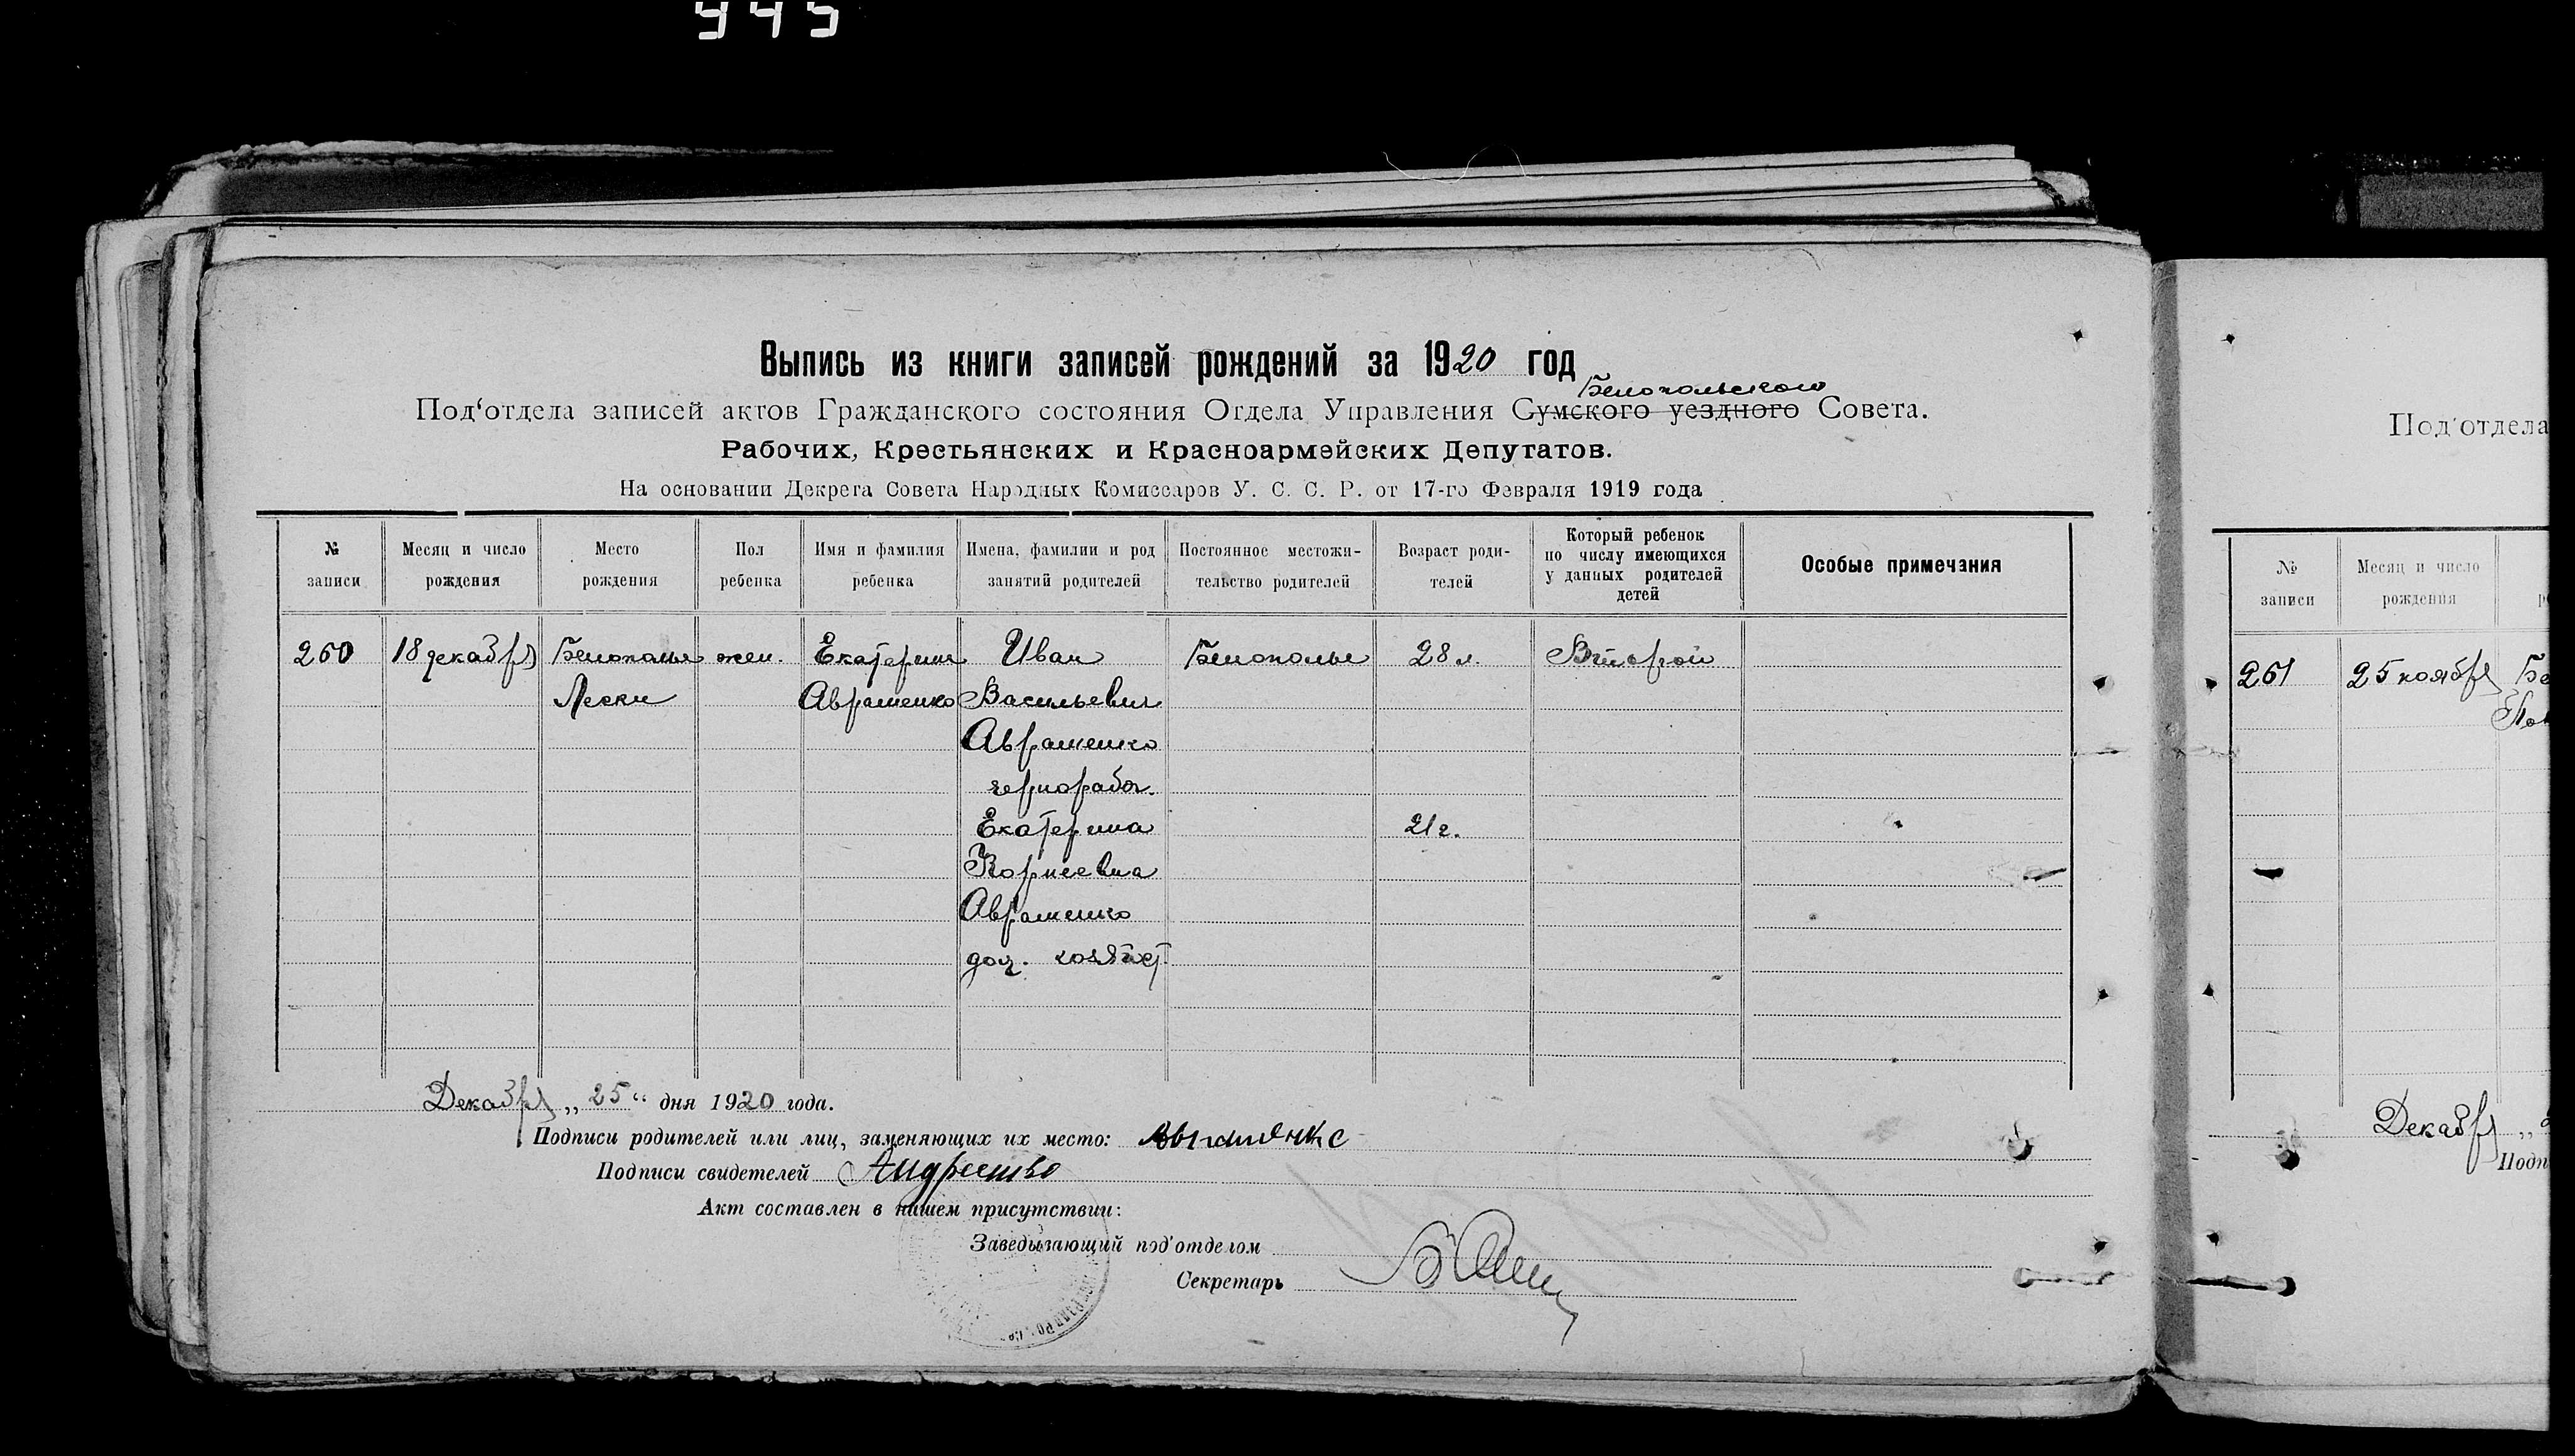 945
Выпись из книги записей рождений за 1920 год
Белопольского
Под'отдела записей актов Гражданского состояния Отдела Управления Сумского уездного Совета.
Рабочих, Крестьянских и Красноармейских Депутатов.
На основании Декрета Совета Народных Комиссаров У. С. С. Р. от 17-го Февраля 1919 года
№ записи | Месяц и число рождения | Место рождения | Пол ребенка | Имя и фамилия ребенка | Имена, фамилии и род занятий родителей | Постоянное местожительство родителей | Возраст родителей | Который ребенок по числу имеющихся у данных родителей детей | Особые примечания
260 18 декабря Белополье жен. Екатерина Иван Белополье 28 л. Второй
Лески Авраменко Васильевич
Авраменко
чернорабоч.
Екатерина 21 г.
Корнеевна
Авраменко
дом. хозяйст.
Декабря „25“ дня 1920 года.
Подписи родителей или лиц, заменяющих их место: Авраменко
Подписи свидетелей
Акт составлен в нашем присутствии:
Заведывающий под'отделом
Секретарь
Под'отдела
№ записи | Месяц и число рождения
261 25 ноября Бе
Декабря „
Подп